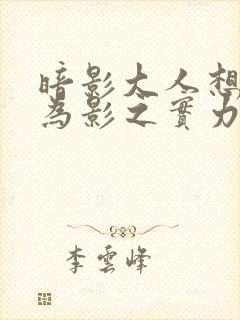 暗影大人想
為影之實力
李雲峰